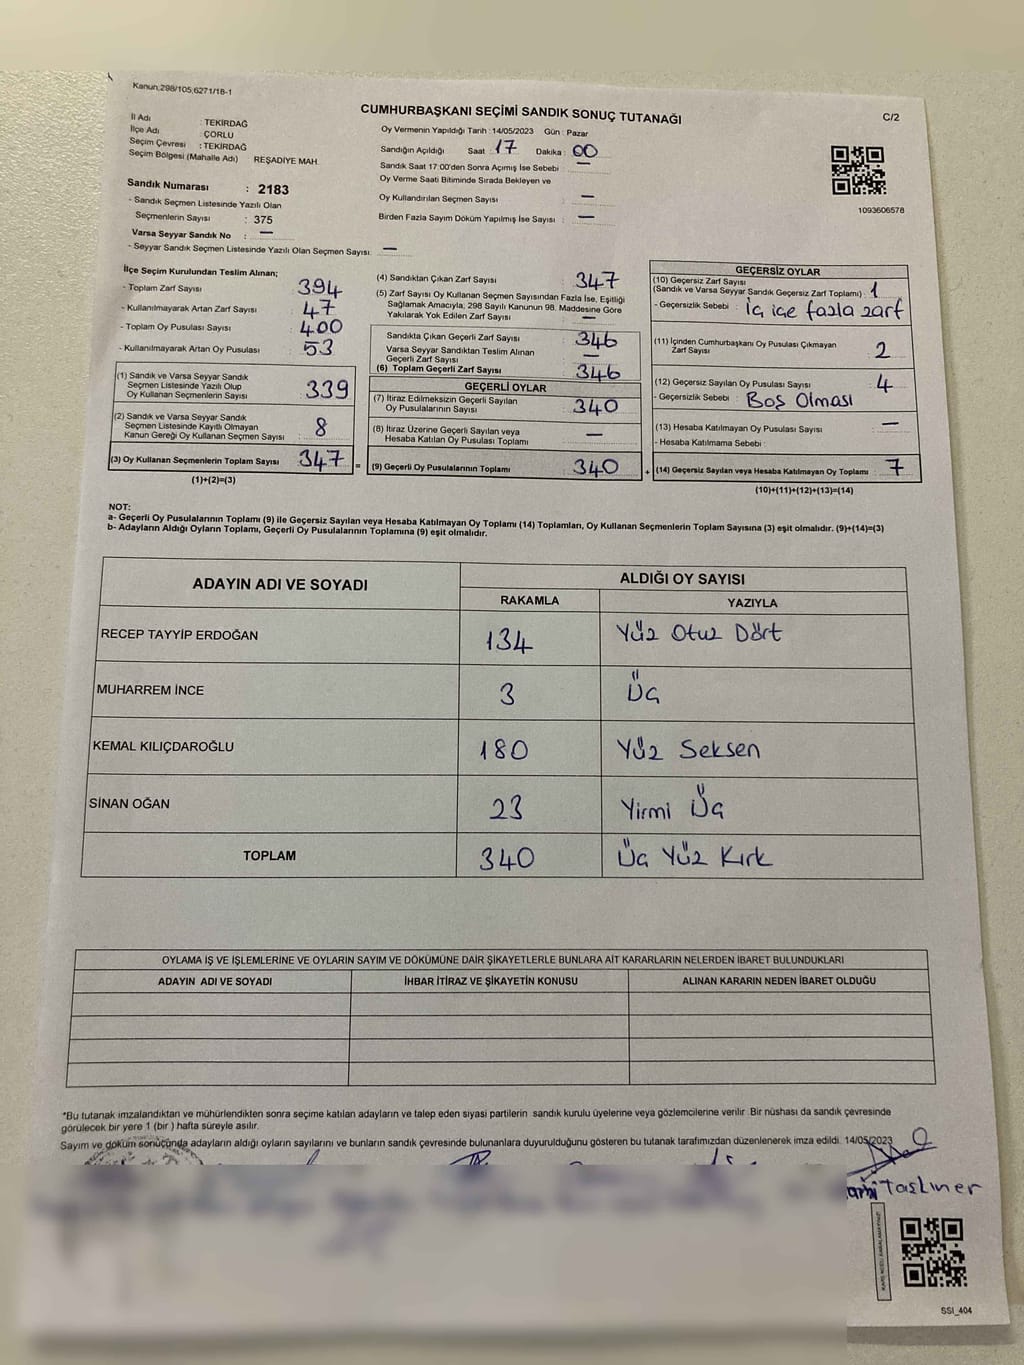 Kanun;298/105;6271/18-1
CUMHURBAŞKANI SEÇİMİ SANDIK SONUÇ TUTANAĞI
C/2
İl Adı : TEKİRDAĞ
İlçe Adı : ÇORLU
Seçim Çevresi : TEKİRDAĞ
Seçim Bölgesi (Mahalle Adı) REŞADİYE MAH.
Sandık Numarası : 2183
- Sandık Seçmen Listesinde Yazılı Olan
Seçmenlerin Sayısı : 375
Varsa Seyyar Sandık No : —
- Seyyar Sandık Seçmen Listesinde Yazılı Olan Seçmen Sayısı: —
Oy Vermenin Yapıldığı Tarih :14/05/2023 Gün : Pazar
Sandığın Açıldığı Saat : 17 Dakika : 00
Sandık Saat 17:00'den Sonra Açımış İse Sebebi : —
Oy Verme Saati Bitiminde Sırada Bekleyen ve
Oy Kullandırılan Seçmen Sayısı : —
Birden Fazla Sayım Döküm Yapılmış İse Sayısı : —
1093606578
İlçe Seçim Kurulundan Teslim Alınan;
- Toplam Zarf Sayısı : 394
- Kullanılmayarak Artan Zarf Sayısı : 47
- Toplam Oy Pusulası Sayısı : 400
- Kullanılmayarak Artan Oy Pusulası : 53
(1) Sandık ve Varsa Seyyar Sandık
Seçmen Listesinde Yazılı Olup
Oy Kullanan Seçmenlerin Sayısı : 339
(2) Sandık ve Varsa Seyyar Sandık
Seçmen Listesinde Kayıtlı Olmayan
Kanun Gereği Oy Kullanan Seçmen Sayısı : 8
(3) Oy Kullanan Seçmenlerin Toplam Sayısı : 347 =
(1)+(2)=(3)
(4) Sandıktan Çıkan Zarf Sayısı : 347
(5) Zarf Sayısı Oy Kullanan Seçmen Sayısından Fazla İse, Eşitliği
Sağlamak Amacıyla, 298 Sayılı Kanunun 98. Maddesine Göre
Yakılarak Yok Edilen Zarf Sayısı : —
Sandıkta Çıkan Geçerli Zarf Sayısı : 346
Varsa Seyyar Sandıktan Teslim Alınan
Geçerli Zarf Sayısı : —
(6) Toplam Geçerli Zarf Sayısı : 346
GEÇERLİ OYLAR
(7) İtiraz Edilmeksizin Geçerli Sayılan
Oy Pusulalarının Sayısı : 340
(8) İtiraz Üzerine Geçerli Sayılan veya
Hesaba Katılan Oy Pusulası Toplamı : —
(9) Geçerli Oy Pusulalarının Toplamı : 340 +
GEÇERSİZ OYLAR
(10) Geçersiz Zarf Sayısı
(Sandık ve Varsa Seyyar Sandık Geçersiz Zarf Toplamı) : 1
- Geçersizlik Sebebi : İç içe fazla zarf
(11) İçinden Cumhurbaşkanı Oy Pusulası Çıkmayan
Zarf Sayısı : 2
(12) Geçersiz Sayılan Oy Pusulası Sayısı : 4
- Geçersizlik Sebebi : Boş Olması
(13) Hesaba Katılmayan Oy Pusulası Sayısı : —
- Hesaba Katılmama Sebebi :
(14) Geçersiz Sayılan veya Hesaba Katılmayan Oy Toplamı : 7
(10)+(11)+(12)+(13)=(14)
NOT:
a- Geçerli Oy Pusulalarının Toplamı (9) ile Geçersiz Sayılan veya Hesaba Katılmayan Oy Toplamı (14) Toplamları, Oy Kullanan Seçmenlerin Toplam Sayısına (3) eşit olmalıdır. (9)+(14)=(3)
b- Adayların Aldığı Oyların Toplamı, Geçerli Oy Pusulalarının Toplamına (9) eşit olmalıdır.
ADAYIN ADI VE SOYADI
ALDIĞI OY SAYISI
RAKAMLA YAZIYLA
RECEP TAYYİP ERDOĞAN 134 Yüz Otuz Dört
MUHARREM İNCE 3 Üç
KEMAL KILIÇDAROĞLU 180 Yüz Seksen
SİNAN OĞAN 23 Yirmi Üç
TOPLAM 340 Üç Yüz Kırk
OYLAMA İŞ VE İŞLEMLERİNE VE OYLARIN SAYIM VE DÖKÜMÜNE DAİR ŞİKAYETLERLE BUNLARA AİT KARARLARIN NELERDEN İBARET BULUNDUKLARI
ADAYIN ADI VE SOYADI İHBAR İTİRAZ VE ŞİKAYETİN KONUSU ALINAN KARARIN NEDEN İBARET OLDUĞU
*Bu tutanak imzalandıktan ve mühürlendikten sonra seçime katılan adayların ve talep eden siyasi partilerin sandık kurulu üyelerine veya gözlemcilerine verilir. Bir nüshası da sandık çevresinde
görülecek bir yere 1 (bir ) hafta süreyle asılır.
Sayım ve döküm sonucunda adayların aldığı oyların sayılarını ve bunların sandık çevresinde bulunanlara duyurulduğunu gösteren bu tutanak tarafımızdan düzenlenerek imza edildi. 14/05/2023
SSI_404